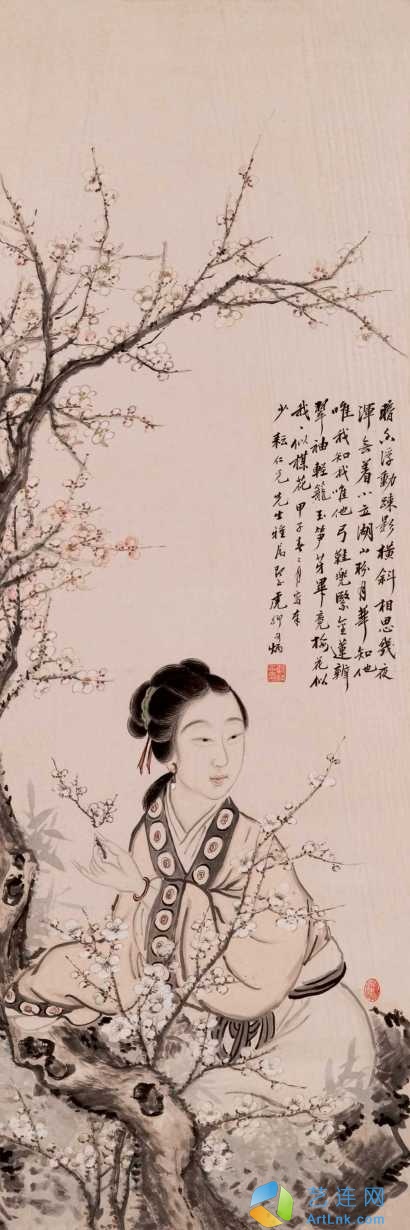 暗香浮動疎影橫斜相思幾夜
渾無着小立湖山盼月華知他
唯我知我唯他弓鞋兜緊金蓮瓣
翠袖輕籠玉笋芽畢竟梅花似
我我似楳花 甲子春二月寫奉
少耘仁兄先生雅屬 虎卿
艺连网
ArtLnk.com